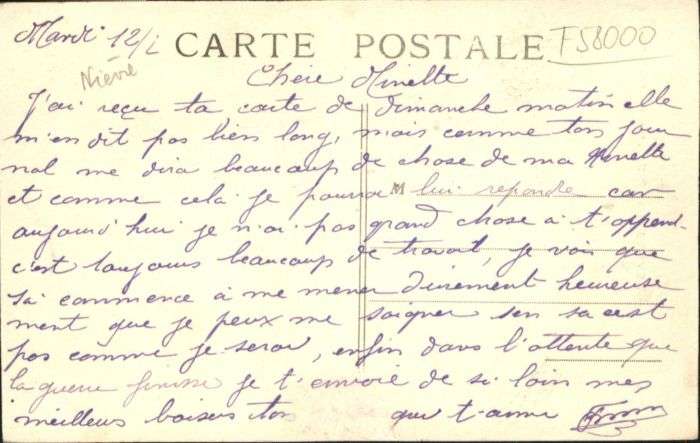 Mardi 12/2 CARTE POSTALE F58000
Nièvre
Chère Minette
J'ai reçu ta carte de dimanche matin elle
m'en dit pas bien long, mais comme ton jour
nal me dira beaucoup de chose de ma Minette
et comme cela je pourrai lui repondre car
aujourd'hui je n'ai pas grand chose à t'apprend-
c'est toujours beaucoup de travail, je vois que
sa commence à me mener durement heureuse
ment que je peux me soigner sen sa cest
pas comme je serai, enfin dans l'attente que
la guerre finisse je t'envoie de si loin mes
meilleurs baisers ton qui t'aime